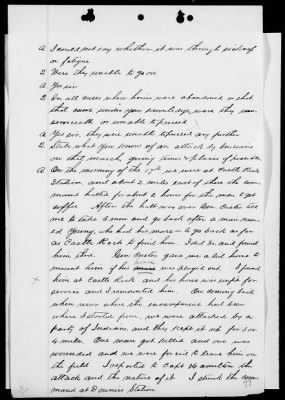 A I could not say whether it was through sickness
or fatigue
Q Were they unable to go on
A Yes sir
Q In all cases where horses were abandoned or shot
that came under your knowledge were they
or unable to proceed
A Yes sir, they were unable to proceed any further
Q State what you know of an attack by Indians
on that march, giving time & places if possible
A On the morning of the 17th we were at Castle Rock
Station and about 2 miles east of there the com
mand halted for about 2 hours for the men to get
coffee After the halt was over Gen Custer told
me to take 6 men and go back after a man nam
ed Young, who had his mare - to go back as far
as Castle Rock to find him. I did so, and found
him there. Gen Custer gave me a led horse to
mount him if his horse was played out. I found
him at Castle Rock and his horse was unfit for
service and I remounted him. On coming back
when near where the encampment had been
where I started from, we were attacked by a
party of Indians, and they kept it up for 3 or
4 miles One man got killed and one was
wounded and we were forced to leave him on
the field I reported to Capt Hamilton the
attack and the nature of it I struck the com
mand at Downers Station